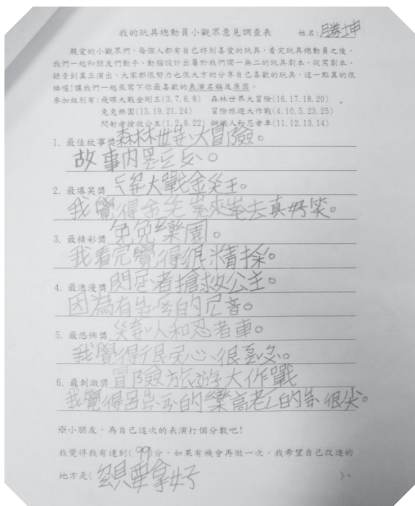 我的玩具總動員小觀眾意見調查表 姓名:勝坤
親愛的小觀眾們,每個人都有自己特別喜愛的玩具,看完玩具總動員之後,
我們一起和朋友們動手、動腦設計出屬於我們獨一無二的玩具劇本。從寫劇本、
錄音到真正演出,大家都很努力也很大方的分享自己喜歡的玩具,這一點真的很
棒喔!讓我們一起來寫下你最喜歡的表演名稱及原因。
參加組別有:飛碟大戰金剛王(3.7.6.8) 森林世界大冒險(16.17.18.20)
兔兔樂園(13.19.21.24) 冒險旅遊大作戰(4.10.5.23.25)
閃電者搶救公主(1.2.9.22) (11.12.13.14)
1. 最佳故事獎森林世界大冒險。
故事內
2. 最爆笑獎 大戰金 王。
我覺得 來 去真好笑。
3. 最精彩獎 兔兔樂園。
我看完覺得很精採。
4. 最浪漫獎 閃電者搶救公主。
因為有 的
5. 最恐怖獎 人和忍者車。
我覺得 心很
6. 最刺激獎 冒險旅遊大作戰
我覺得 的樂高 的 很尖。
※小朋友,為自己這次的表演打個分數吧!
我覺得我有達到(99)分,如果有機會再做一次,我希望自己改進的
地方是( 要拿好 )。